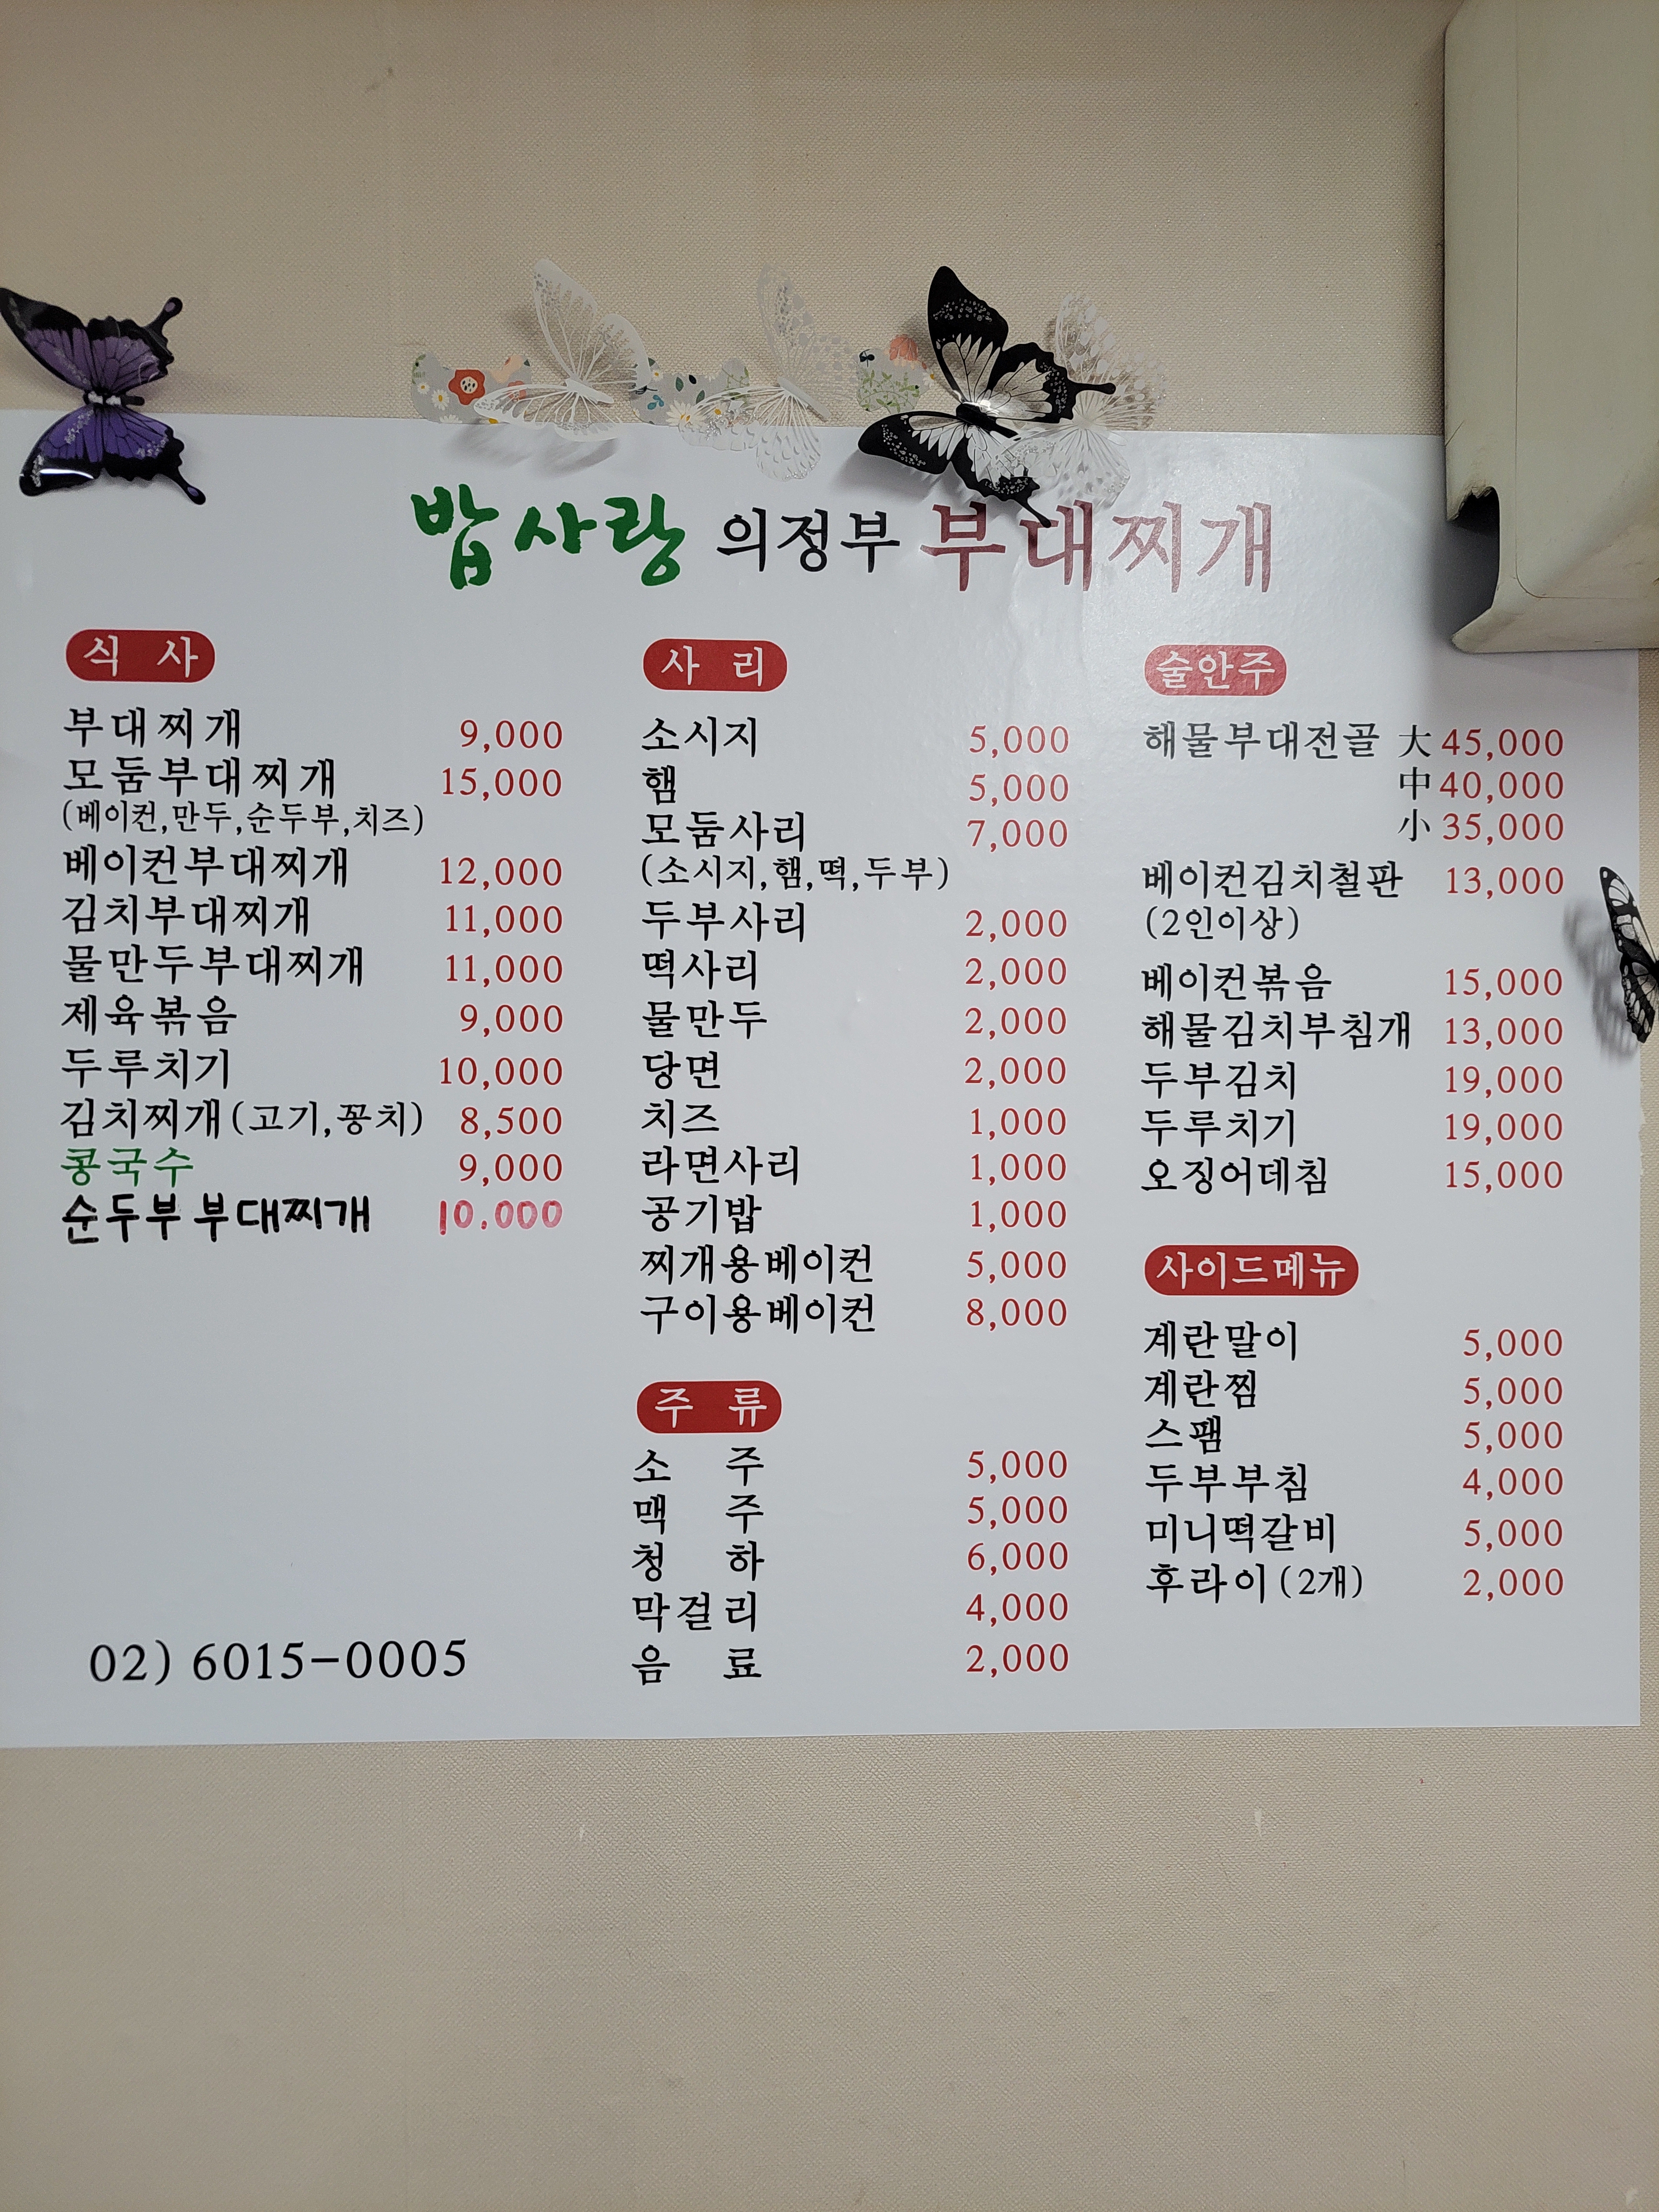 밥사랑 의정부 부대찌개
식 사
부대찌개 9,000
모둠부대찌개 15,000
(베이컨,만두,순두부,치즈)
베이컨부대찌개 12,000
김치부대찌개 11,000
물만두부대찌개 11,000
제육볶음 9,000
두루치기 10,000
김치찌개(고기,꽁치) 8,500
콩국수 9,000
순두부 부대찌개 10.000
02) 6015-0005
사 리
소시지 5,000
햄 5,000
모둠사리 7,000
(소시지,햄,떡,두부)
두부사리 2,000
떡사리 2,000
물만두 2,000
당면 2,000
치즈 1,000
라면사리 1,000
공기밥 1,000
찌개용베이컨 5,000
구이용베이컨 8,000
주 류
소 주 5,000
맥 주 5,000
청 하 6,000
막걸리 4,000
음 료 2,000
술안주
해물부대전골 大 45,000
中 40,000
小 35,000
베이컨김치철판 13,000
(2인이상)
베이컨볶음 15,000
해물김치부침개 13,000
두부김치 19,000
두루치기 19,000
오징어데침 15,000
사이드메뉴
계란말이 5,000
계란찜 5,000
스팸 5,000
두부부침 4,000
미니떡갈비 5,000
후라이(2개) 2,000